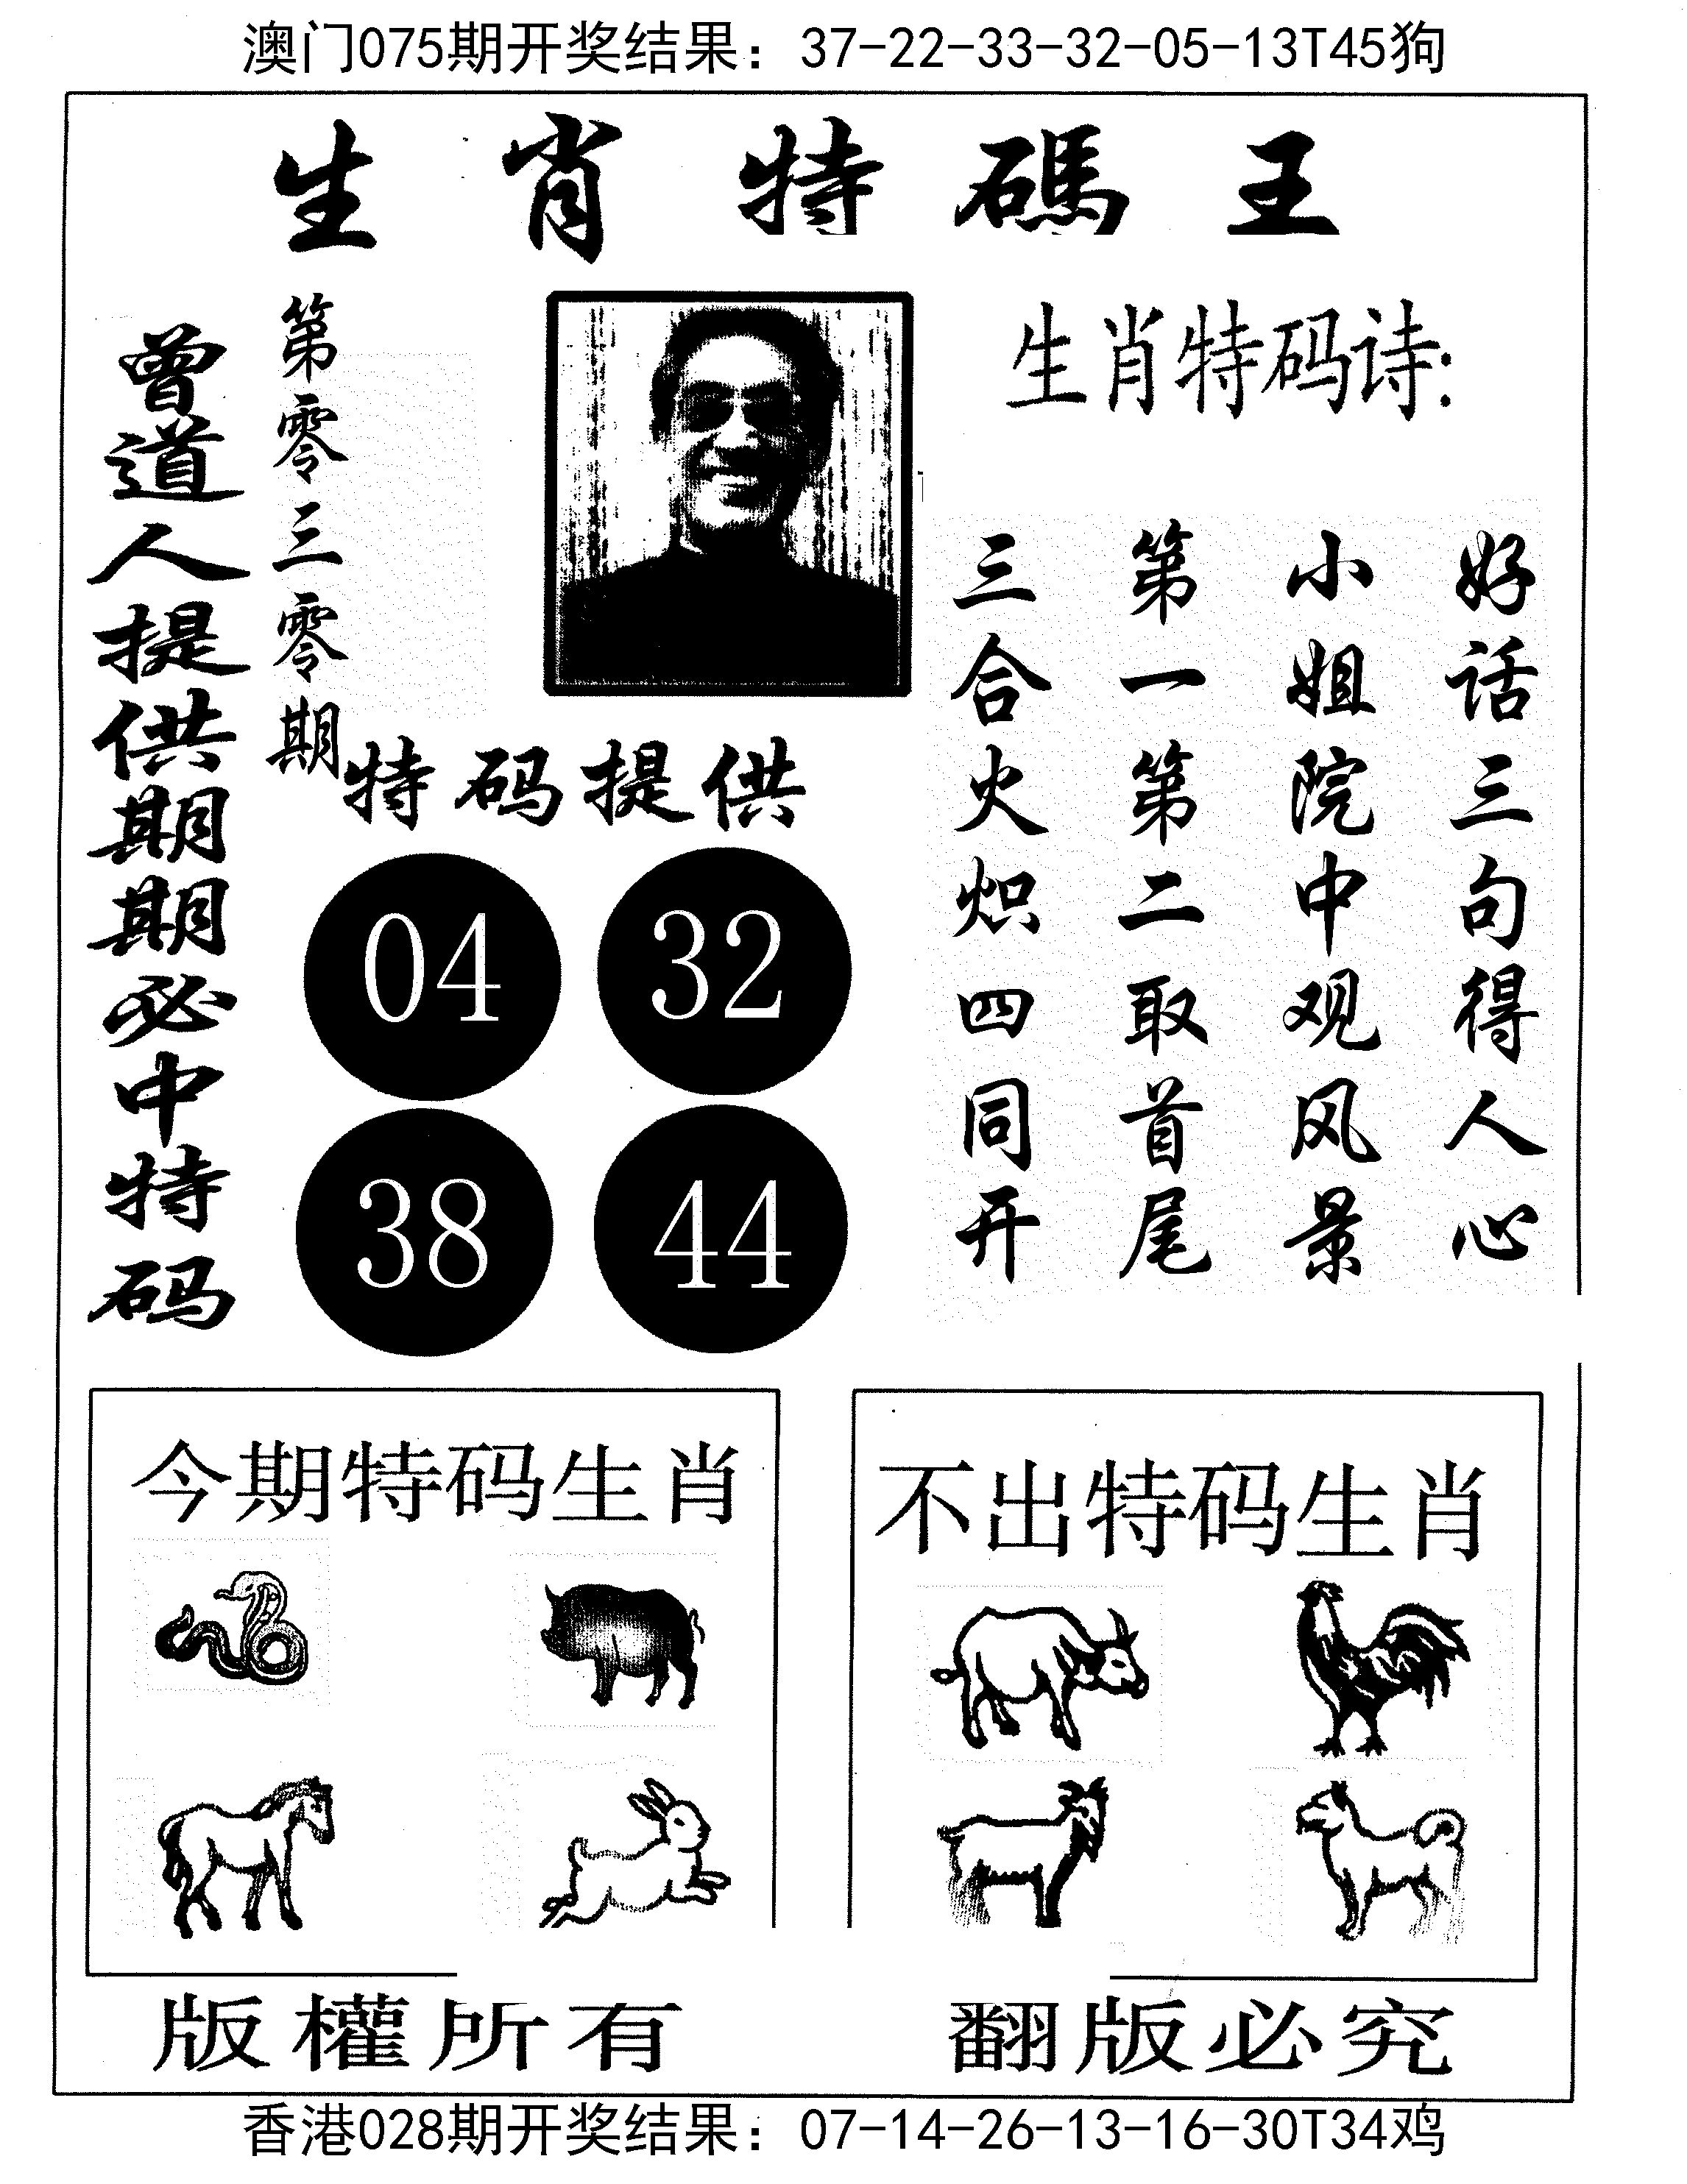 澳门075期开奖结果：37-22-33-32-05-13T45狗
生肖特碼王
曾道人提供期期必中特码
第零三零期
生肖特码诗:
好话三句得人心
小姐院中观风景
第一第二取首尾
三合火炽四同开
特码提供
04 32
38 44
今期特码生肖
不出特码生肖
版權所有 翻版必究
香港028期开奖结果：07-14-26-13-16-30T34鸡